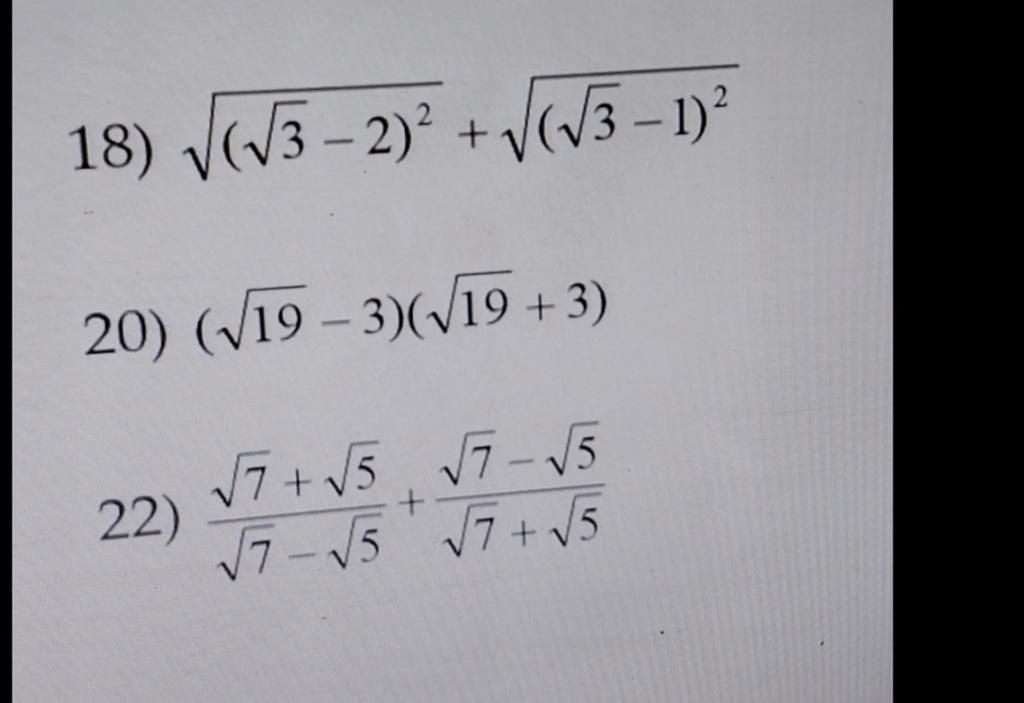 18) √((√3 – 2)²) + √((√3 – 1)²)
20) (√19 – 3)(√19 + 3)
22) (√7 + √5)/(√7 – √5) + (√7 – √5)/(√7 + √5)